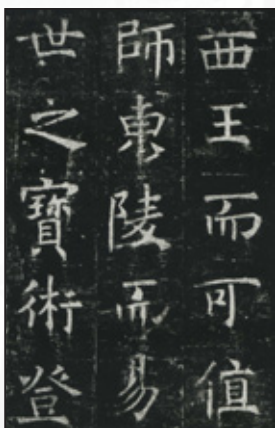 西王而可值
師東陵而易
世之寶術登